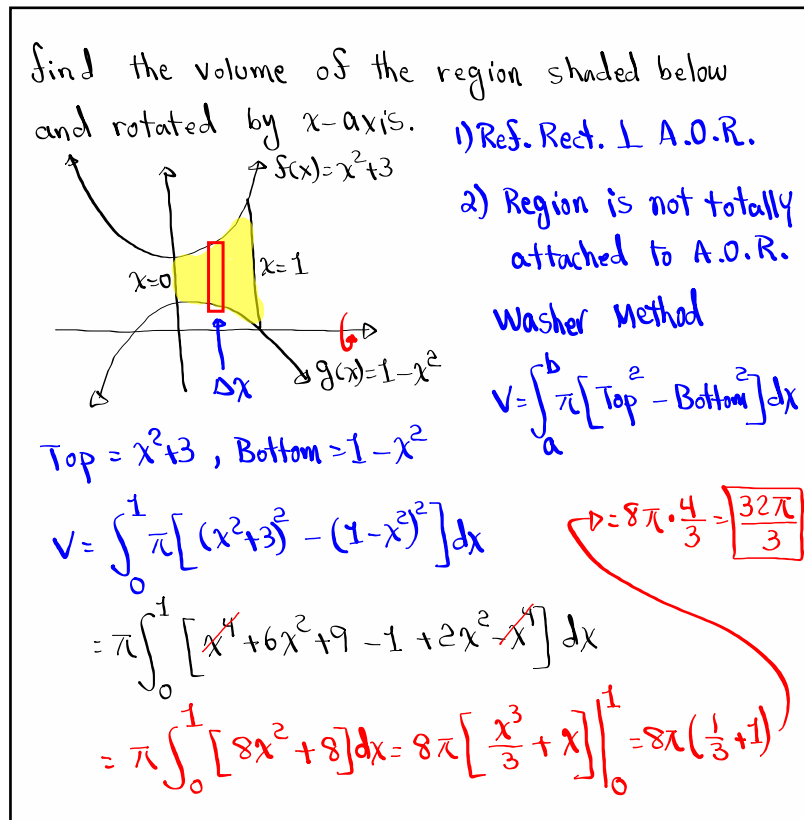 find the volume of the region shaded below
and rotated by x-axis.
1) Ref. Rect. ⊥ A.O.R.
f(x)=x²+3
2) Region is not totally
attached to A.O.R.
x=0
x=1
Washer Method
Δx
g(x)=1-x²
V=∫ₐᵇ π[Top² - Bottom²]dx
Top = x²+3, Bottom = 1-x²
V= ∫₀¹ π[(x²+3)² - (1-x²)²]dx
= π∫₀¹ [x⁴+6x²+9-1+2x²-x⁴] dx
= π∫₀¹ [8x²+8]dx = 8π[x³/3 + x]|₀¹ = 8π(1/3+1)
= 8π·4/3 = 32π/3